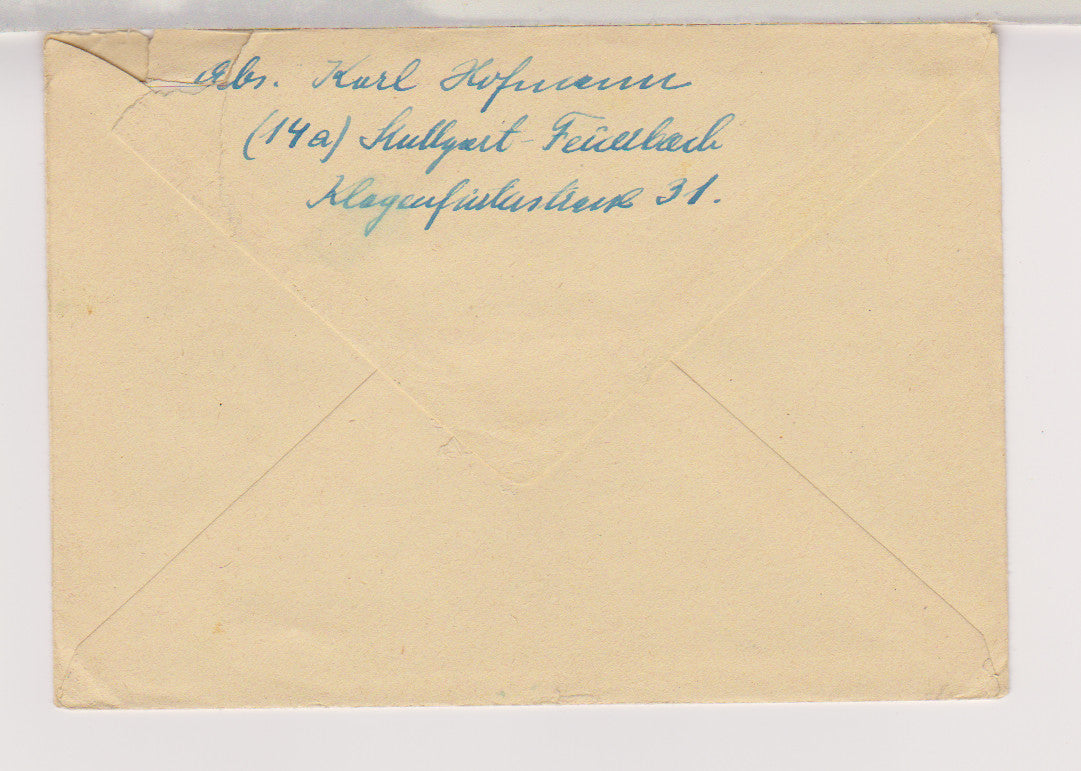 Abs. Karl Hofmann
(14a) Stuttgart-Feuerbach
Klagenfurterstrasse 31.